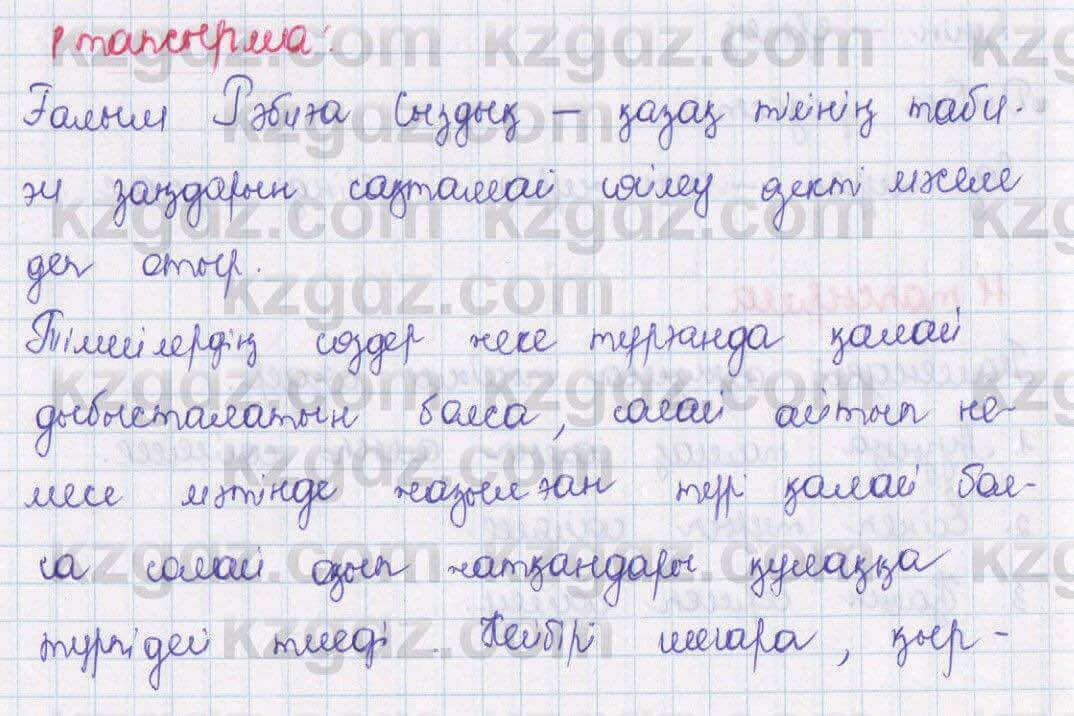 1 тапсырма:
Ғалым Рәбиға Сыздық – қазақ тілінің таби-
ғи заңдарын сақтамай сөйлеу өзекті мәселе
деп отыр.
Тілшілердің сөздер жеке тұрғанда қалай
дыбысталатын болса, солай айтып не-
месе мәтінде жазылған түрі қалай бол-
са солай оқып жатқандары құлаққа
түрпідей тиеді. Кейбірі шығара, қыр-
kzgdz.com